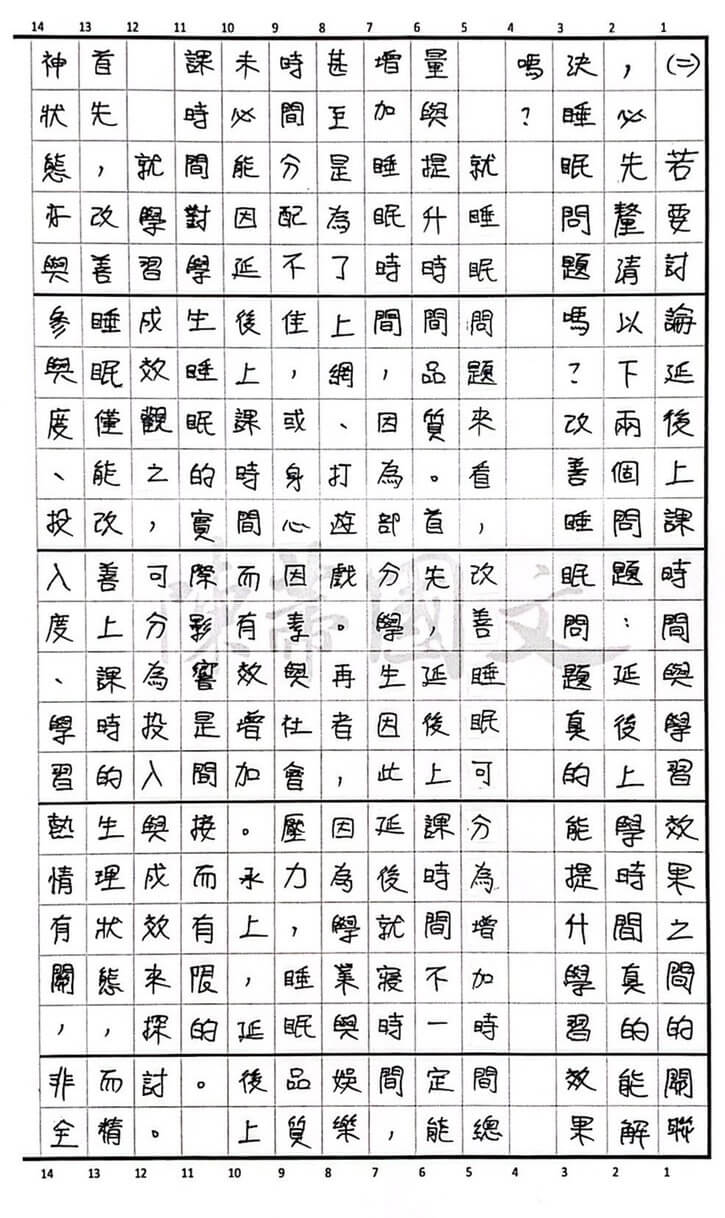 14 13 12 11 10 9 8 7 6 5 4 3 2 1
(二) 若要討論延後上課時間與學習效果之間的關聯
，必先釐清以下兩個問題：延後上學時間真的能解
決睡眠問題嗎？改善睡眠問題真的能提升學習效果
嗎？
就睡眠問題來看，改善睡眠可分為增加時間總
量與提升時間品質。首先，延後上課時間不一定能
增加睡眠時間，因為部分學生因此延後就寢時間，
甚至是為了上網、打遊戲。再者，因為學業與娛樂
時間分配不佳，或身心因素與社會壓力，睡眠品質
未必能因延後上課時間而有效增加。承上，延後上
課時間對學生睡眠的實際影響是間接而有限的。
就學習成效觀之，可分為投入與成效來探討。
首先，改善睡眠僅能改善上課時的生理狀態，而精
神狀態亦與參與度、投入度、學習熱情有關，非全
14 13 12 11 10 9 8 7 6 5 4 3 2 1